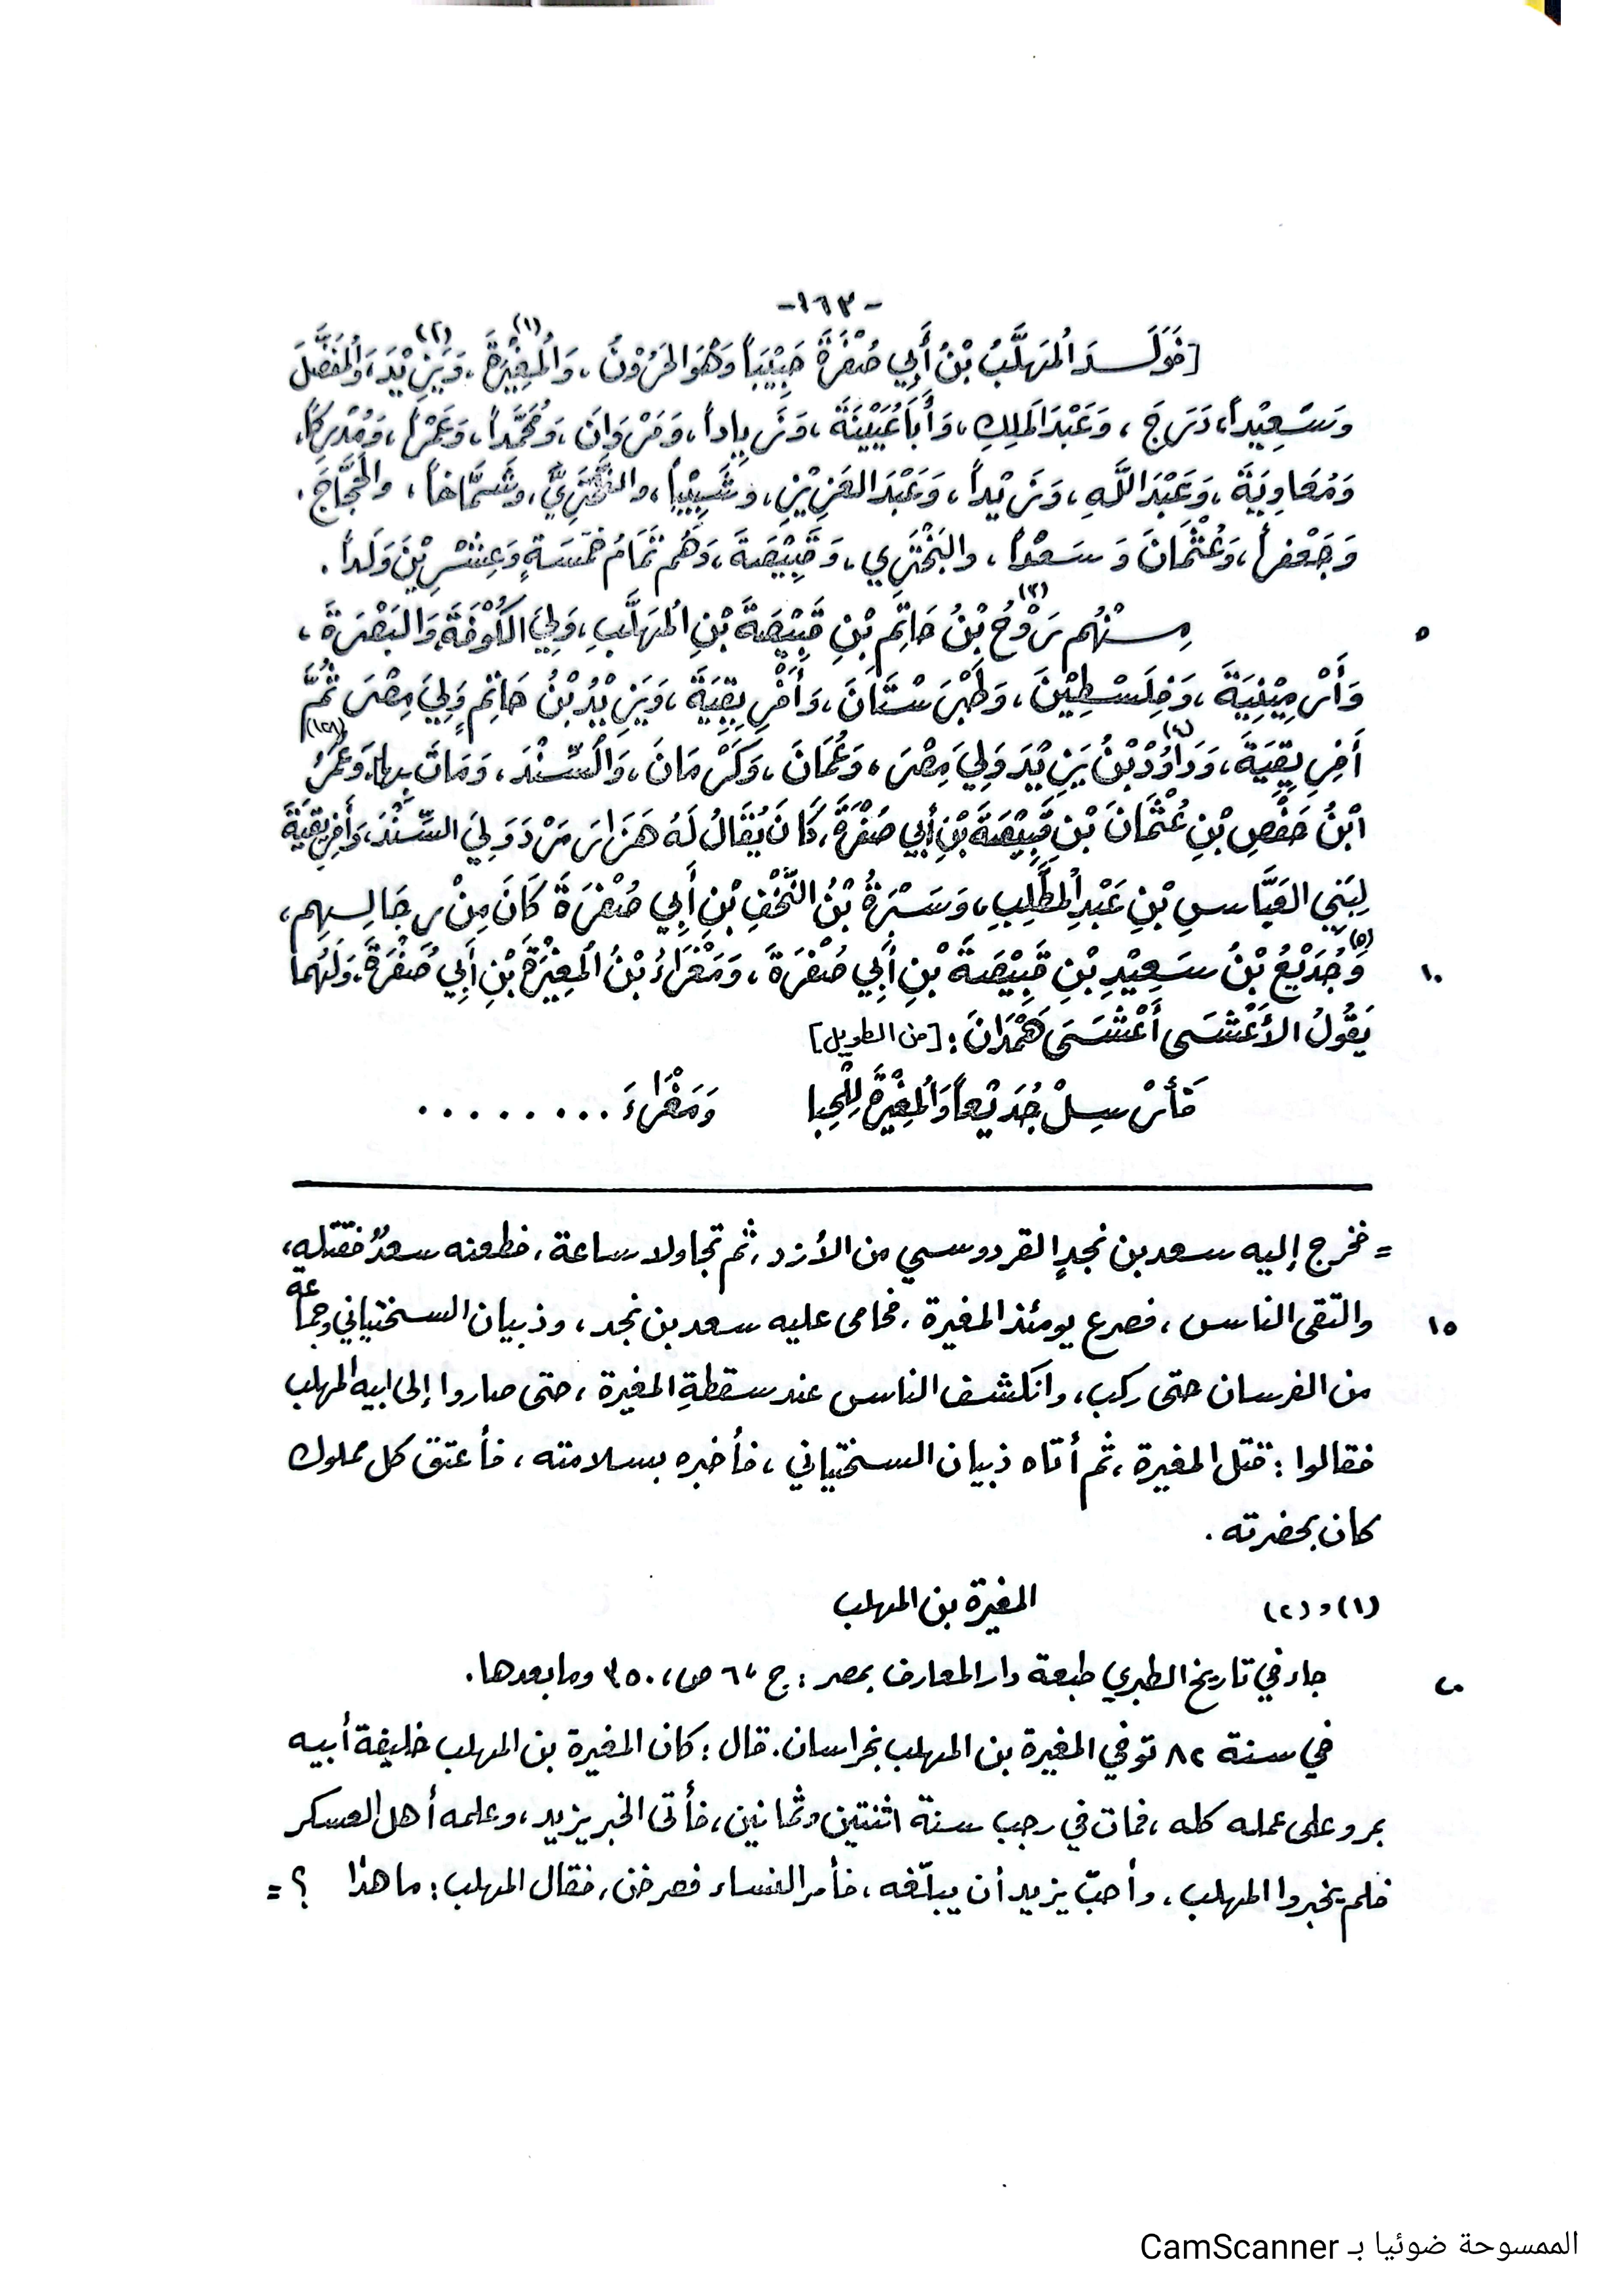 -١٦٣-
[فَوَلَـــدَ المُهَلَّبُ بْنُ أَبِي صُفْرَةَ حَبِيْبَاً وَهُوَ الحَرُوْنُ، وَالمُغِيْرَةَ (١)، وَيَزِيْدَ (٢)، وَالمُفَضَّلَ
وَسَعِيْداً، دَرَجَ، وَعَبْدَ المَلِكِ، وَأَبَا عُيَيْنَةَ، وَزِيَاداً، وَمَرْوَانَ، وَمُحَمَّداً، وَعَمْراً، وَمُدْرِكاً،
وَمُعَاوِيَةَ، وَعَبْدَ اللَّهِ، وَزَيْداً، وَعَبْدَ العَزِيْزِ، وَشَبِيْباً، وَشَمَّاخاً، والحَجَّاجَ،
وَجَعْفَراً، وَعُثْمَانَ وَسَعْداً، والبَخْتَرِي، وَقَبِيْصَةَ، وَهُم تَمَامُ خَمْسَةٍ وَعِشْرِيْنَ وَلَداً.
مِـــنْهُم رَوْحُ (٣) بْنُ حَاتِمِ بْنِ قَبِيْصَةَ بْنِ المُهَلَّبِ، وَلِيَ الكُوْفَةَ وَالبَصْرَةَ، ٥
وَأَرْمِيْنِيَةَ، وَفِلَسْطِيْنَ، وَطَبْرَسْتَانَ، وَأَفْرِيقِيَةَ، وَيَزِيْدُ بْنُ حَاتِمٍ وَلِيَ مِصْرَ ثُمَّ
أَفْرِيقِيَةَ، وَدَاوُدُ (٤) بْنُ يَزِيْدَ وَلِيَ مِصْرَ، وَعُمَانَ، وَكَرْمَانَ، وَالسِّنْدَ، وَمَاتَ بِهَا، وَعُمَرُ (١٢٨)
ابْنُ حَفْصِ بْنِ عُثْمَانَ بْنِ قَبِيْصَةَ بْنِ أَبِي صُفْرَةَ، كَانَ يُقَالُ لَهُ هَزَارَمَرْدَ وَلِيَ السِّنْدَ، وَأَفْرِيْقِيَةَ
لِبَنِي العَبَّاسِ بْنِ عَبْدِ المُطَّلِبِ، وَسَبْرَةُ بْنُ النَّخْفِ بْنِ أَبِي صُفْرَةَ كَانَ مِنْ رِجَالِـهِم،
وَجُدَيْعُ (٥) بْنُ سَعِيْدِ بْنِ قَبِيْصَةَ بْنِ أَبِي صُفْرَةَ، وَمَغْرَاءُ بْنُ المُغِيْرَةِ بْنِ أَبِي صُفْرَةَ، وَلَهُمَا ١٠
يَقُولُ الأَعْشَى أَعْشَى هَمْدَانَ: [من الطويل]
فَأَرْسِلْ جُدَيْعاً وَالمُغِيْرَةَ لِلْحِبا وَمَغْرَاءَ . . . . . . . . .
= فخرج إليه سعد بن نجدٍ القردوسي من الأزد، ثم تجاولا ساعة، فطعنه سعدٌ فقتله،
والتقى الناس، فصرع يومئذ المغيرة، فحامى عليه سعد بن نجد، وذبيان السختياني وجماعة ١٥
من الفرسان حتى ركب، وانكشف الناس عند سقطةِ المغيرة، حتى صاروا إلى ابيه المهلب
فقالوا: قتل المغيرة، ثم أتاه ذبيان السختياني، فأخبره بسلامته، فأعتق كل مملوك
كان بحضرته.
(١) و(٢) المغيرة بن المهلب
جاء في تاريخ الطبري طبعة دار المعارف بمصر: ج ٦، ص، ٣٥٠ وما بعدها. ٢٠
في سنة ٨٢ توفي المغيرة بن المهلب بخراسان. قال: كان المغيرة بن المهلب خليفة أبيه
بمرو على عمله كله، فمات في رجب سنة اثنتين وثمانين، فأتى الخبر يزيد، وعلمه أهل العسكر
فلم يخبروا المهلب، وأحبّ يزيد أن يبلّغه، فأمر النساء فصرخن، فقال المهلب: ما هذا ؟ =
الممسوحة ضوئيا بـ CamScanner